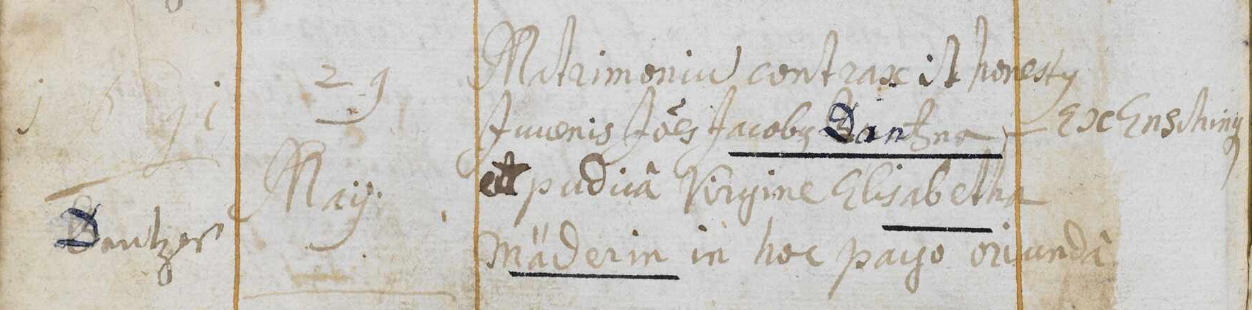 1691
Dantzer
29
Maij.
Matrimoniū contraxit honestꝰ
Juvenis Jōēs Jacobꝰ Dantzer ex Ensching
et pudicâ Virgine Elisabetha
Mäderin in hoc pago oriundâ